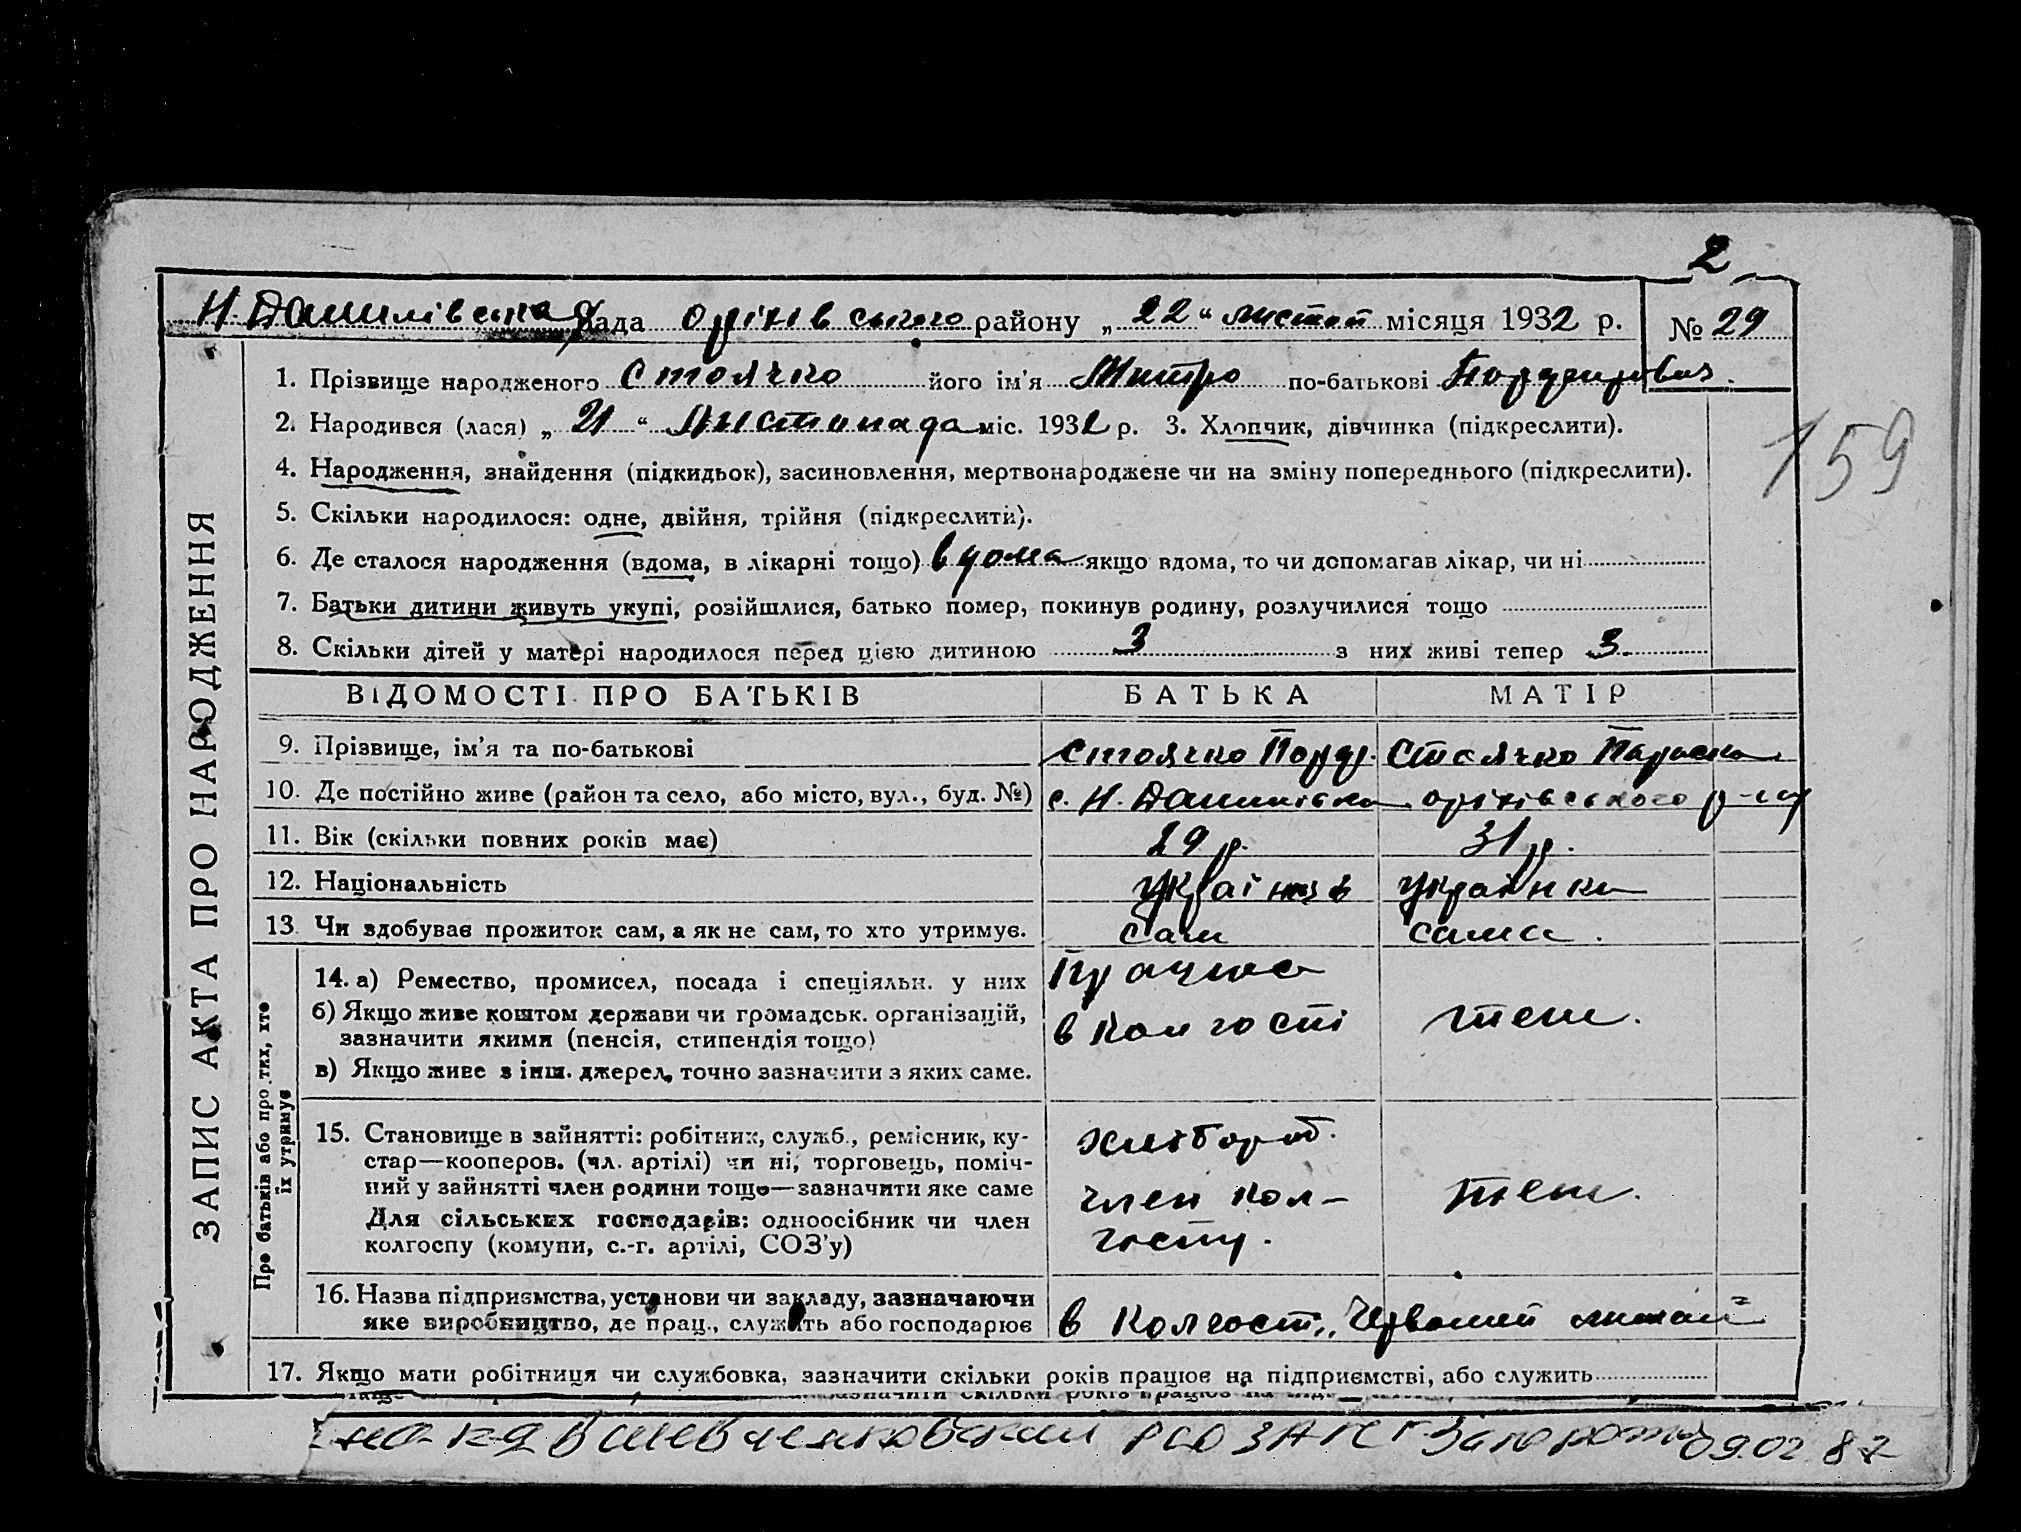 2
Н. Данилівська рада Оріхівського району „22“ листоп місяця 1932 р. № 29
1. Прізвище народженого Стоячко його ім'я Митро по-батькові Порфирович.
2. Народився (лася) „21“ Листопада міс. 1932 р. 3. Хлопчик, дівчинка (підкреслити).
159
4. Народження, знайдення (підкидьок), засиновлення, мертвонароджене чи на зміну попереднього (підкреслити).
5. Скільки народилося: одне, двійня, трійня (підкреслити).
6. Де сталося народження (вдома, в лікарні тощо) вдома якщо вдома, то чи допомагав лікар, чи ні
7. Батьки дитини живуть укупі, розійшлися, батько помер, покинув родину, розлучилися тощо
8. Скільки дітей у матері народилося перед цією дитиною 3 з них живі тепер 3.
ЗАПИС АКТА ПРО НАРОДЖЕННЯ
ВІДОМОСТІ ПРО БАТЬКІВ БАТЬКА МАТІР
9. Прізвище, ім'я та по-батькові Стоячко Порф. Стоячко Параска
10. Де постійно живе (район та село, або місто, вул., буд. №) с. Н. Данилівка Оріхівського р-ну
11. Вік (скільки повних років має) 29 р. 31 р.
12. Національність українець українка
13. Чи здобуває прожиток сам, а як не сам, то хто утримує. сам сама.
Про батьків або про тих, хто
їх утримує
14. а) Ремество, промисел, посада і спеціяльн. у них Працює
б) Якщо живе коштом держави чи громадськ. організацій, в колгоспі теж.
зазначити якими (пенсія, стипендія тощо)
в) Якщо живе з інш. джерел, точно зазначити з яких саме.
15. Становище в зайнятті: робітник, служб., ремісник, ку- хлібороб.
стар—кооперов. (чл. артілі) чи ні, торговець, поміч-
ний у зайнятті член родини тощо—зазначити яке саме член кол- теж.
Для сільських господарів: одноосібник чи член
колгоспу (комуни, с.-г. артілі, СОЗ'у) госпу.
16. Назва підприємства, установи чи закладу, зазначаючи
яке виробництво, де прац., служить або господарює в Колгосп „Червоний
17. Якщо мати робітниця чи службовка, зазначити скільки років працює на підприємстві, або служить
зазначити скільки років працює на
в Шевченковском РСО ЗАГС г Запорожья 09.02.87